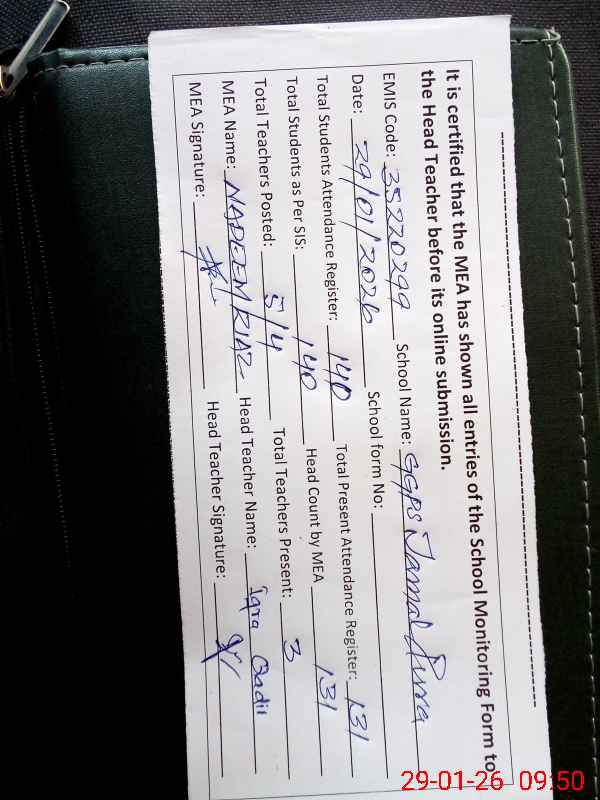 It is certified that the MEA has shown all entries of the School Monitoring Form to
the Head Teacher before its online submission.
EMIS Code: 35220299 School Name: GGPS Jamal Pura
Date: 29/01/2026 School form No:
Total Students Attendance Register: 140 Total Present Attendance Register: 131
Total Students as Per SIS: 140 Head Count by MEA 131
Total Teachers Posted: 5/4 Total Teachers Present: 3
MEA Name: NADEEM RIAZ Head Teacher Name: Iqra Qadir
MEA Signature: Head Teacher Signature:
29-01-26 09:50